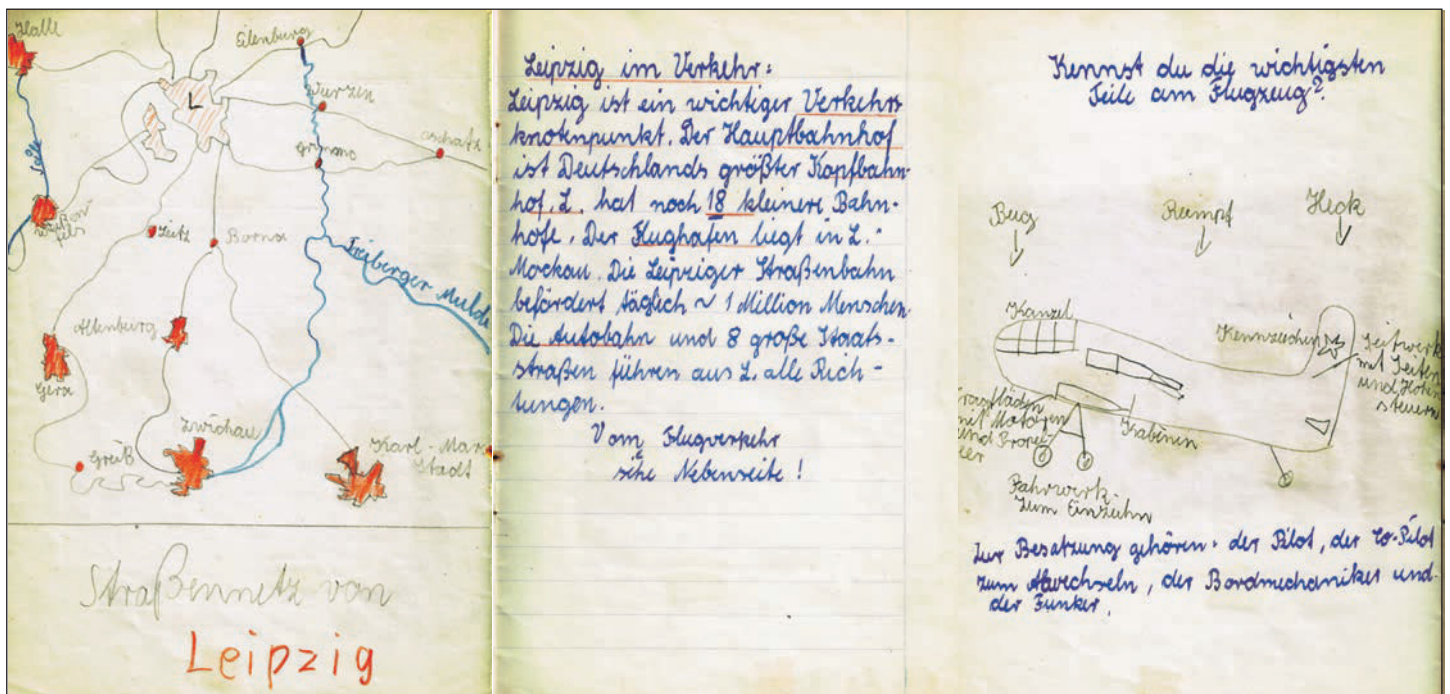 Halle
Eilenburg
L
Wurzen
Oschatz
Grimma
Saale
Weißen-
fels
Zeitz
Borna
Freiberger Mulde
Altenburg
Gera
Zwickau
Greiß
Karl-Marx
Stadt
Straßennetz von
Leipzig
Leipzig im Verkehr:
Leipzig ist ein wichtiger Verkehrs
knotenpunkt. Der Hauptbahnhof
ist Deutschlands größter Kopfbahn-
hof. L. hat noch 18 kleinere Bahn-
höfe. Der Flughafen liegt in L.-
Mockau. Die Leipziger Straßenbahn
befördert täglich ~ 1 Million Menschen
Die Autobahn und 8 große Staats-
straßen führen aus L. alle Rich-
tungen.
Vom Flugverkehr
siehe Nebenseite!
Kennst du die wichtigsten
Teile am Flugzeug?
Bug
Rumpf
Heck
Kanzel
Kennzeichen
Leitwerk
mit Seiten
und Höhen
steuern
Tragflächen
mit Motoren
und Propel-
ler
Kabinen
Fahrwerk-
zum Einziehn
Zur Besatzung gehören: der Pilot, der Co-Pilot
zum Abwechseln, der Bordmechaniker und
der Funker.